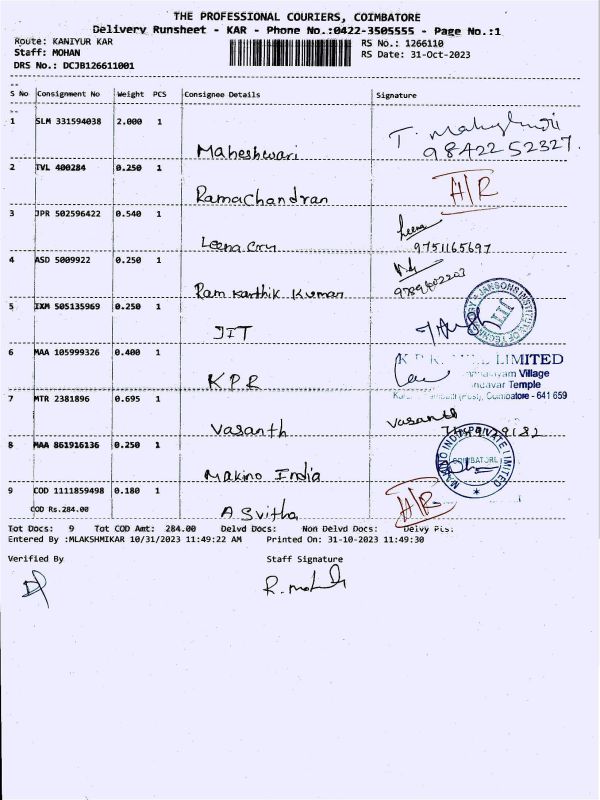 THE PROFESSIONAL COURIERS, COIMBATORE
Delivery Runsheet - KAR - Phone No.:0422-3505555 - Page No.:1
Route: KANIYUR KAR
RS No.: 1266110
Staff: MOHAN
RS Date: 31-Oct-2023
DRS No.: DCJB126611001
S No Consignment No Weight PCS Consignee Details Signature
1 SLM 331594038 2.000 1
Maheshwari
9842252327.
2 TVL 400284 0.250 1 H/R
Ramachandran
3 JPR 502596422 0.540 1 Leena
Leena Cry 9751165697
4 ASD 5009922 0.250 1
Ram Karthik Kumar
5 IXM 505135969 0.250 1 JANSONS INSTITUTE OF TECHNOLOGY JIT
JIT
6 MAA 105999326 0.400 1 LIMITED
KPR Village
Temple
Coimbatore - 641 659
7 MTR 2381896 0.695 1 Vasanth
Vasanth
8 MAA 861916136 0.250 1 MAKINO INDIA PRIVATE LIMITED COIMBATORE
Makino India
9 COD 1111859498 0.180 1 H/R
COD Rs.284.00
ASvitha
Tot Docs: 9 Tot COD Amt: 284.00 Delvd Docs: Non Delvd Docs: Delvy Pis:
Entered By :MLAKSHMIKAR 10/31/2023 11:49:22 AM Printed On: 31-10-2023 11:49:30
Verified By Staff Signature